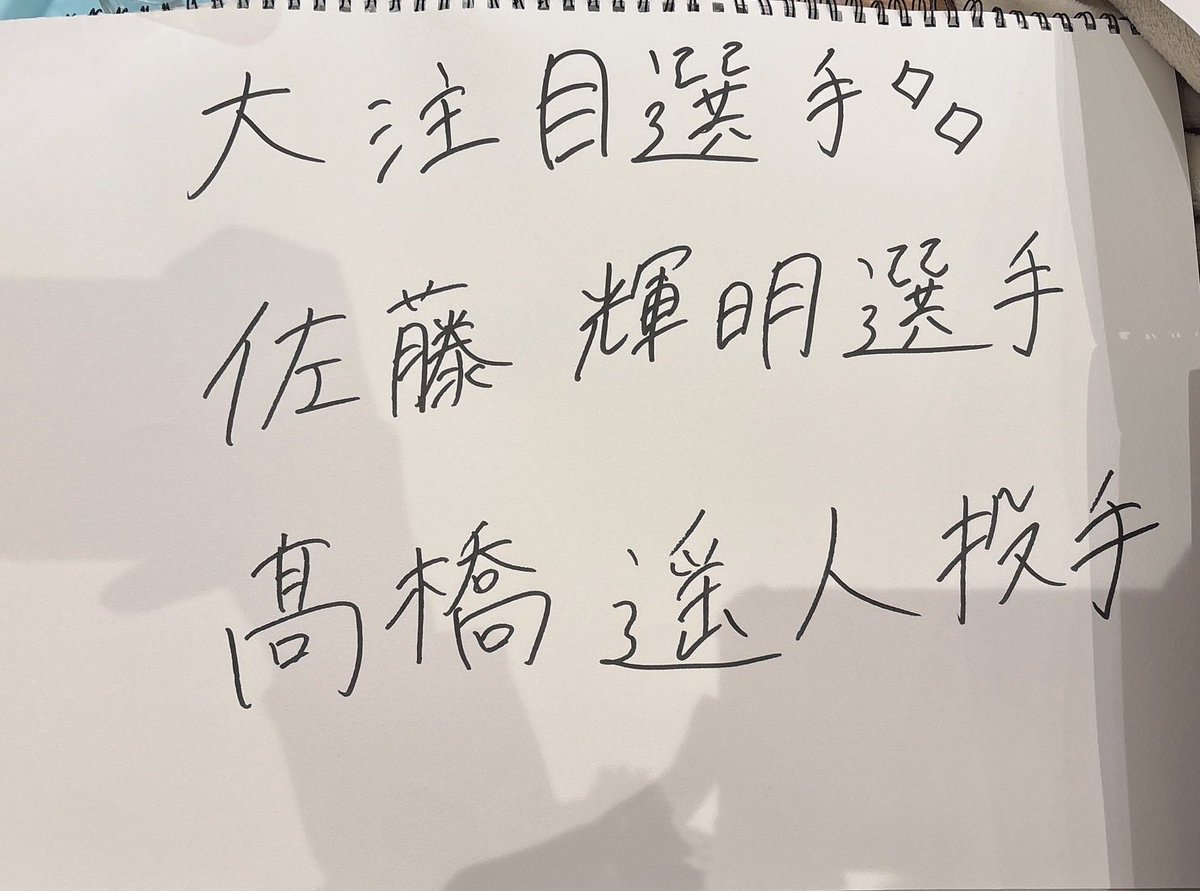 大注目選手◇◇
佐藤 輝明選手
髙橋 遥人投手